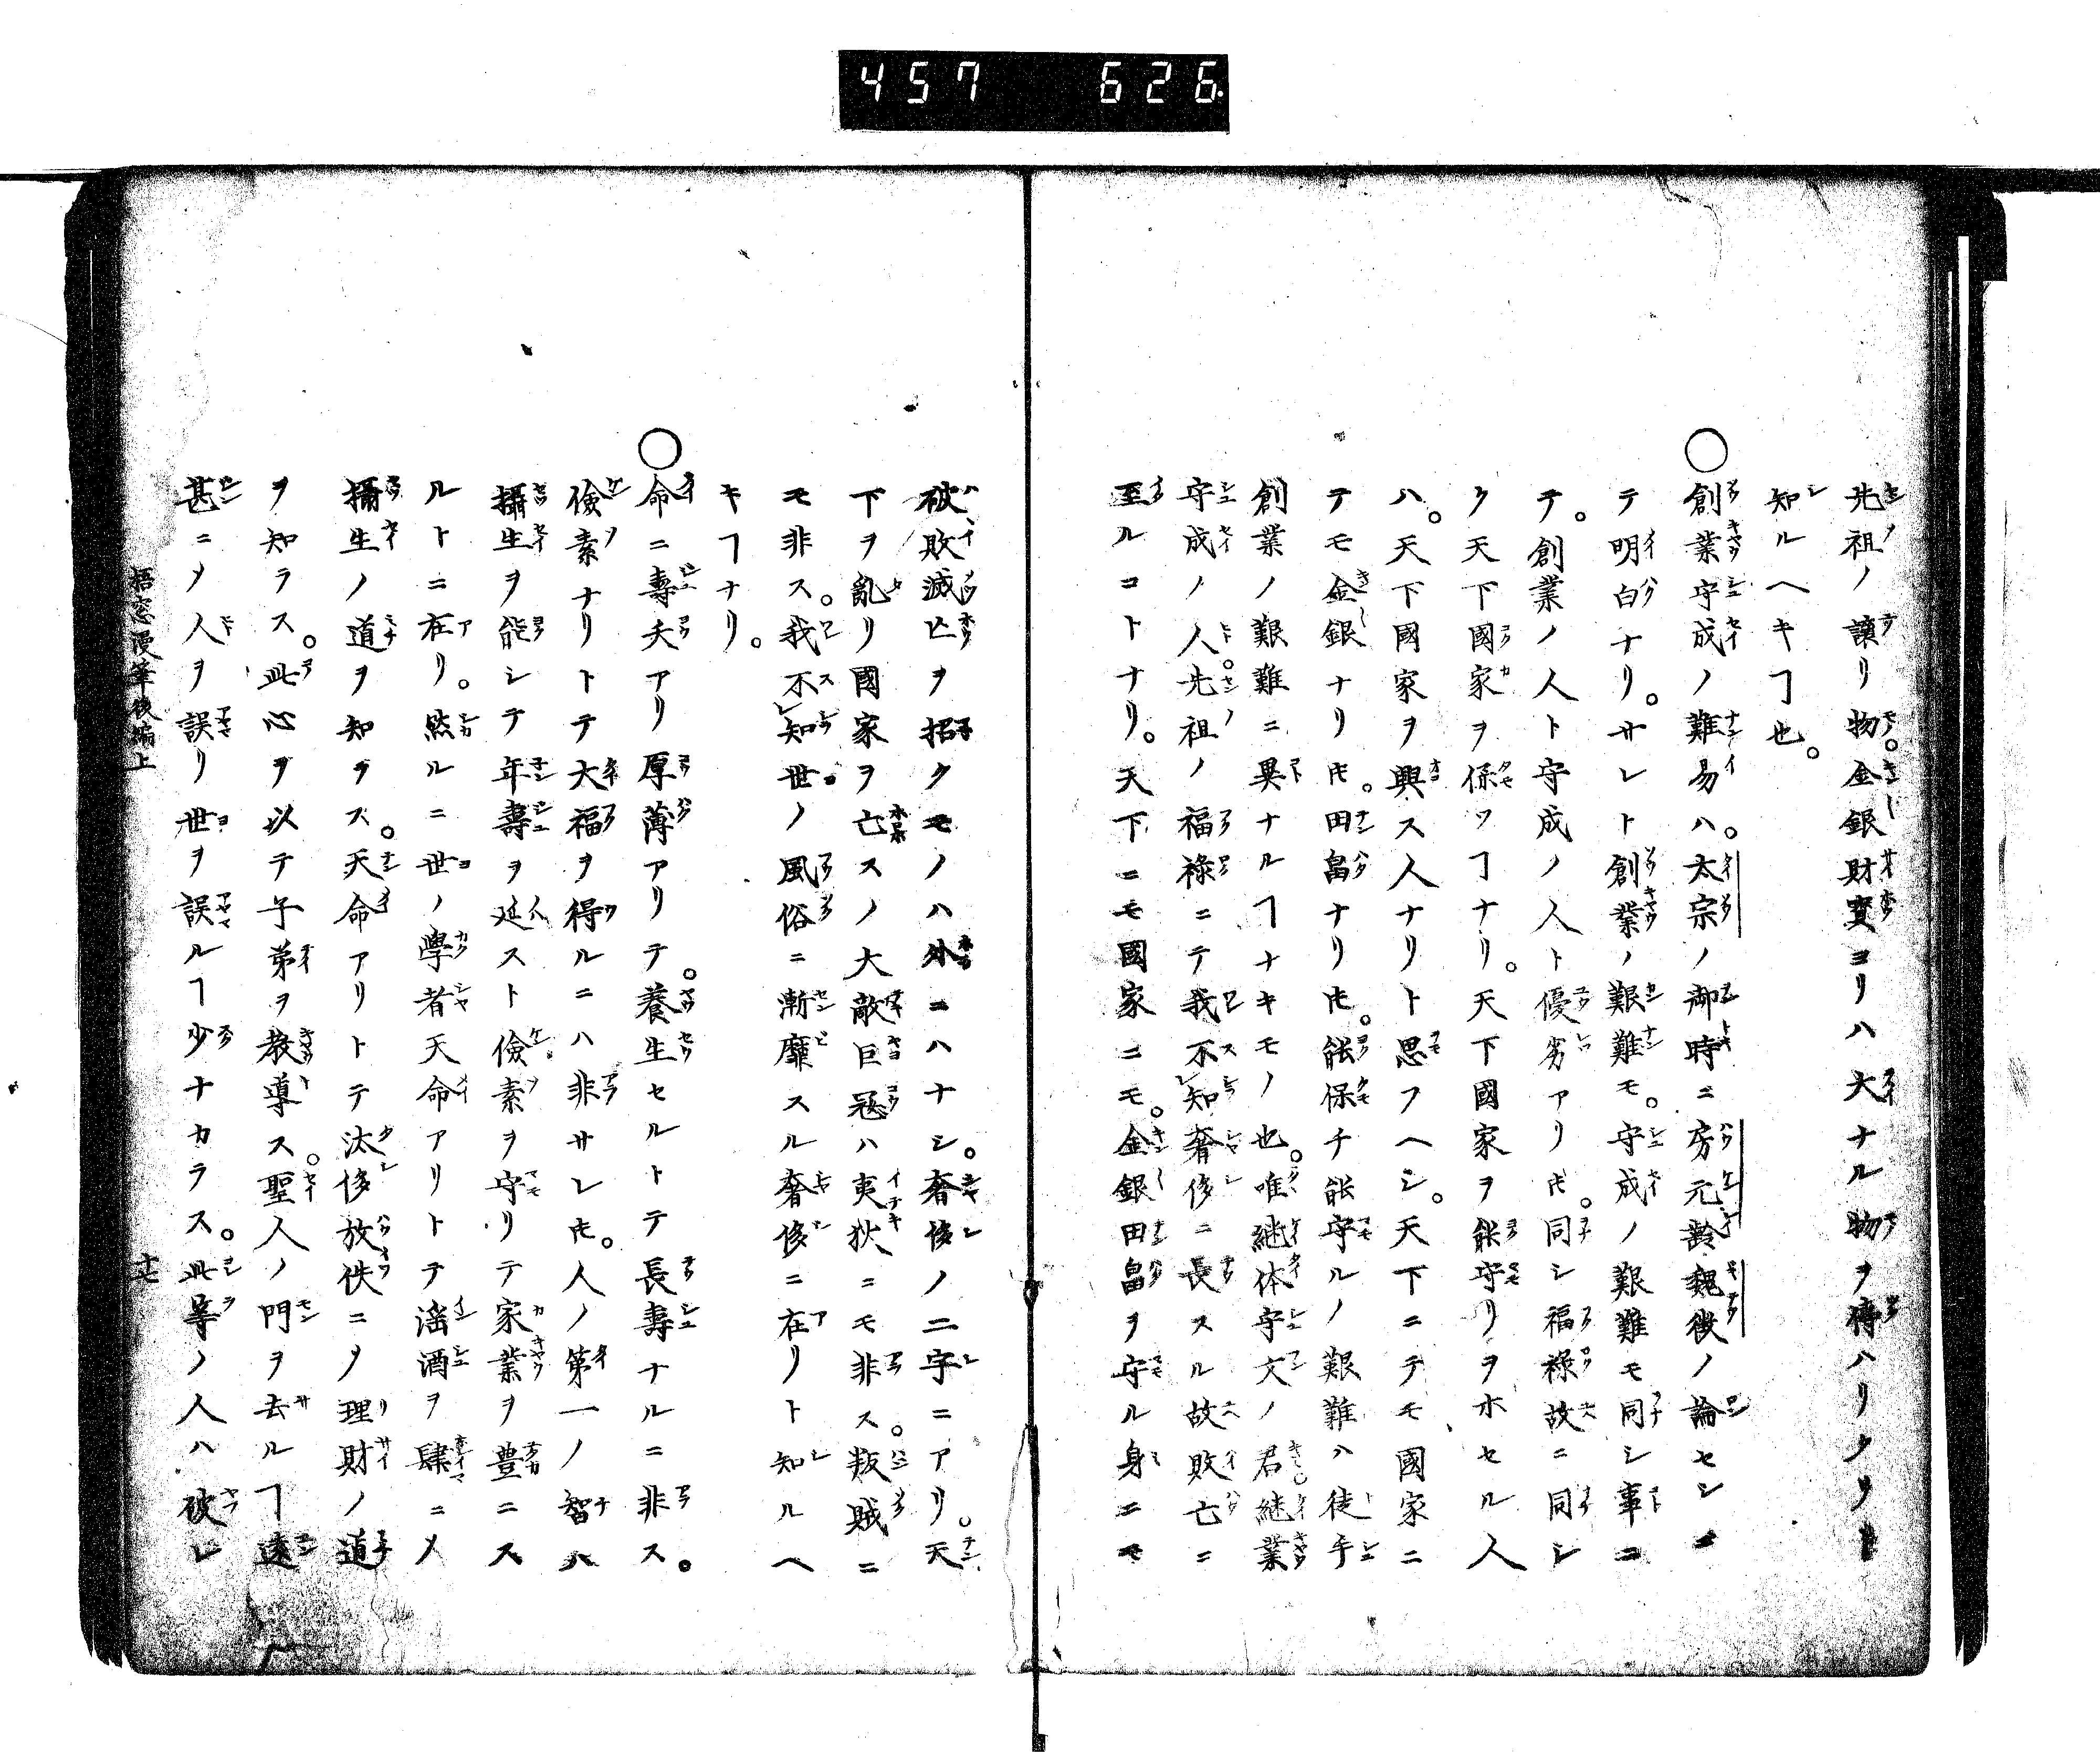 457 626.
先祖ノ譲リ物。金銀財寳ヨリハ大ナル物ヲ傳ハリタリト
知ルヘキヿ也。
○創業守成ノ難易ハ。太宗ノ御時ニ房元齡魏徴ノ論セシニ
テ明白ナリ。サレト創業ノ艱難モ。守成ノ艱難モ同シ事ニ
テ。創業ノ人ト守成ノ人ト優劣アリ𪜈。同シ福祿故ニ同シ
ク天下國家ヲ保ツヿナリ。天下國家ヲ能守リヲホセル人
ハ。天下國家ヲ興ス人ナリト思フヘシ。天下ニテモ國家ニ
テモ金銀ナリ𪜈。田畠ナリ𪜈。能保チ能守ルノ艱難ハ徒手
創業ノ艱難ニ異ナルヿナキモノ也。唯継体守文ノ君継業
守成ノ人。先祖ノ福祿ニテ我不知奢侈ニ長スル故敗亡ニ
至ルコトナリ。天下ニモ國家ニモ。金銀田畠ヲ守ル身ニモ
破敗滅亡ヲ招クモノハ外ニハナシ。奢侈ノ二字ニアリ。天
下ヲ亂リ國家ヲ亡スノ大敵巨冦ハ夷狄ニモ非ス。叛賊ニ
モ非ス。我不知世ノ風俗ニ漸靡スル奢侈ニ在リト知ルヘ
キヿナリ。
○命ニ壽夭アリ厚薄アリテ。養生セルトテ長壽ナルニ非ス。
儉素ナリトテ大福ヲ得ルニハ非サレ𪜈。人ノ第一ノ智ハ
攝生ヲ能シテ年壽ヲ延スト儉素ヲ守リテ家業ヲ豊ニス
ルトニ在リ。然ルニ世ノ學者天命アリトテ滛酒ヲ肆ニメ
攝生ノ道ヲ知ラス。天命アリトテ汰侈放佚ニメ理財ノ道
ヲ知ラス。此心ヲ以テ子弟ヲ教導ス。聖人ノ門ヲ去ルヿ遠
甚ニメ人ヲ誤リ世ヲ誤ルヿ少ナカラス。此等ノ人ハ破レ
梧窓漫筆後編上 十七